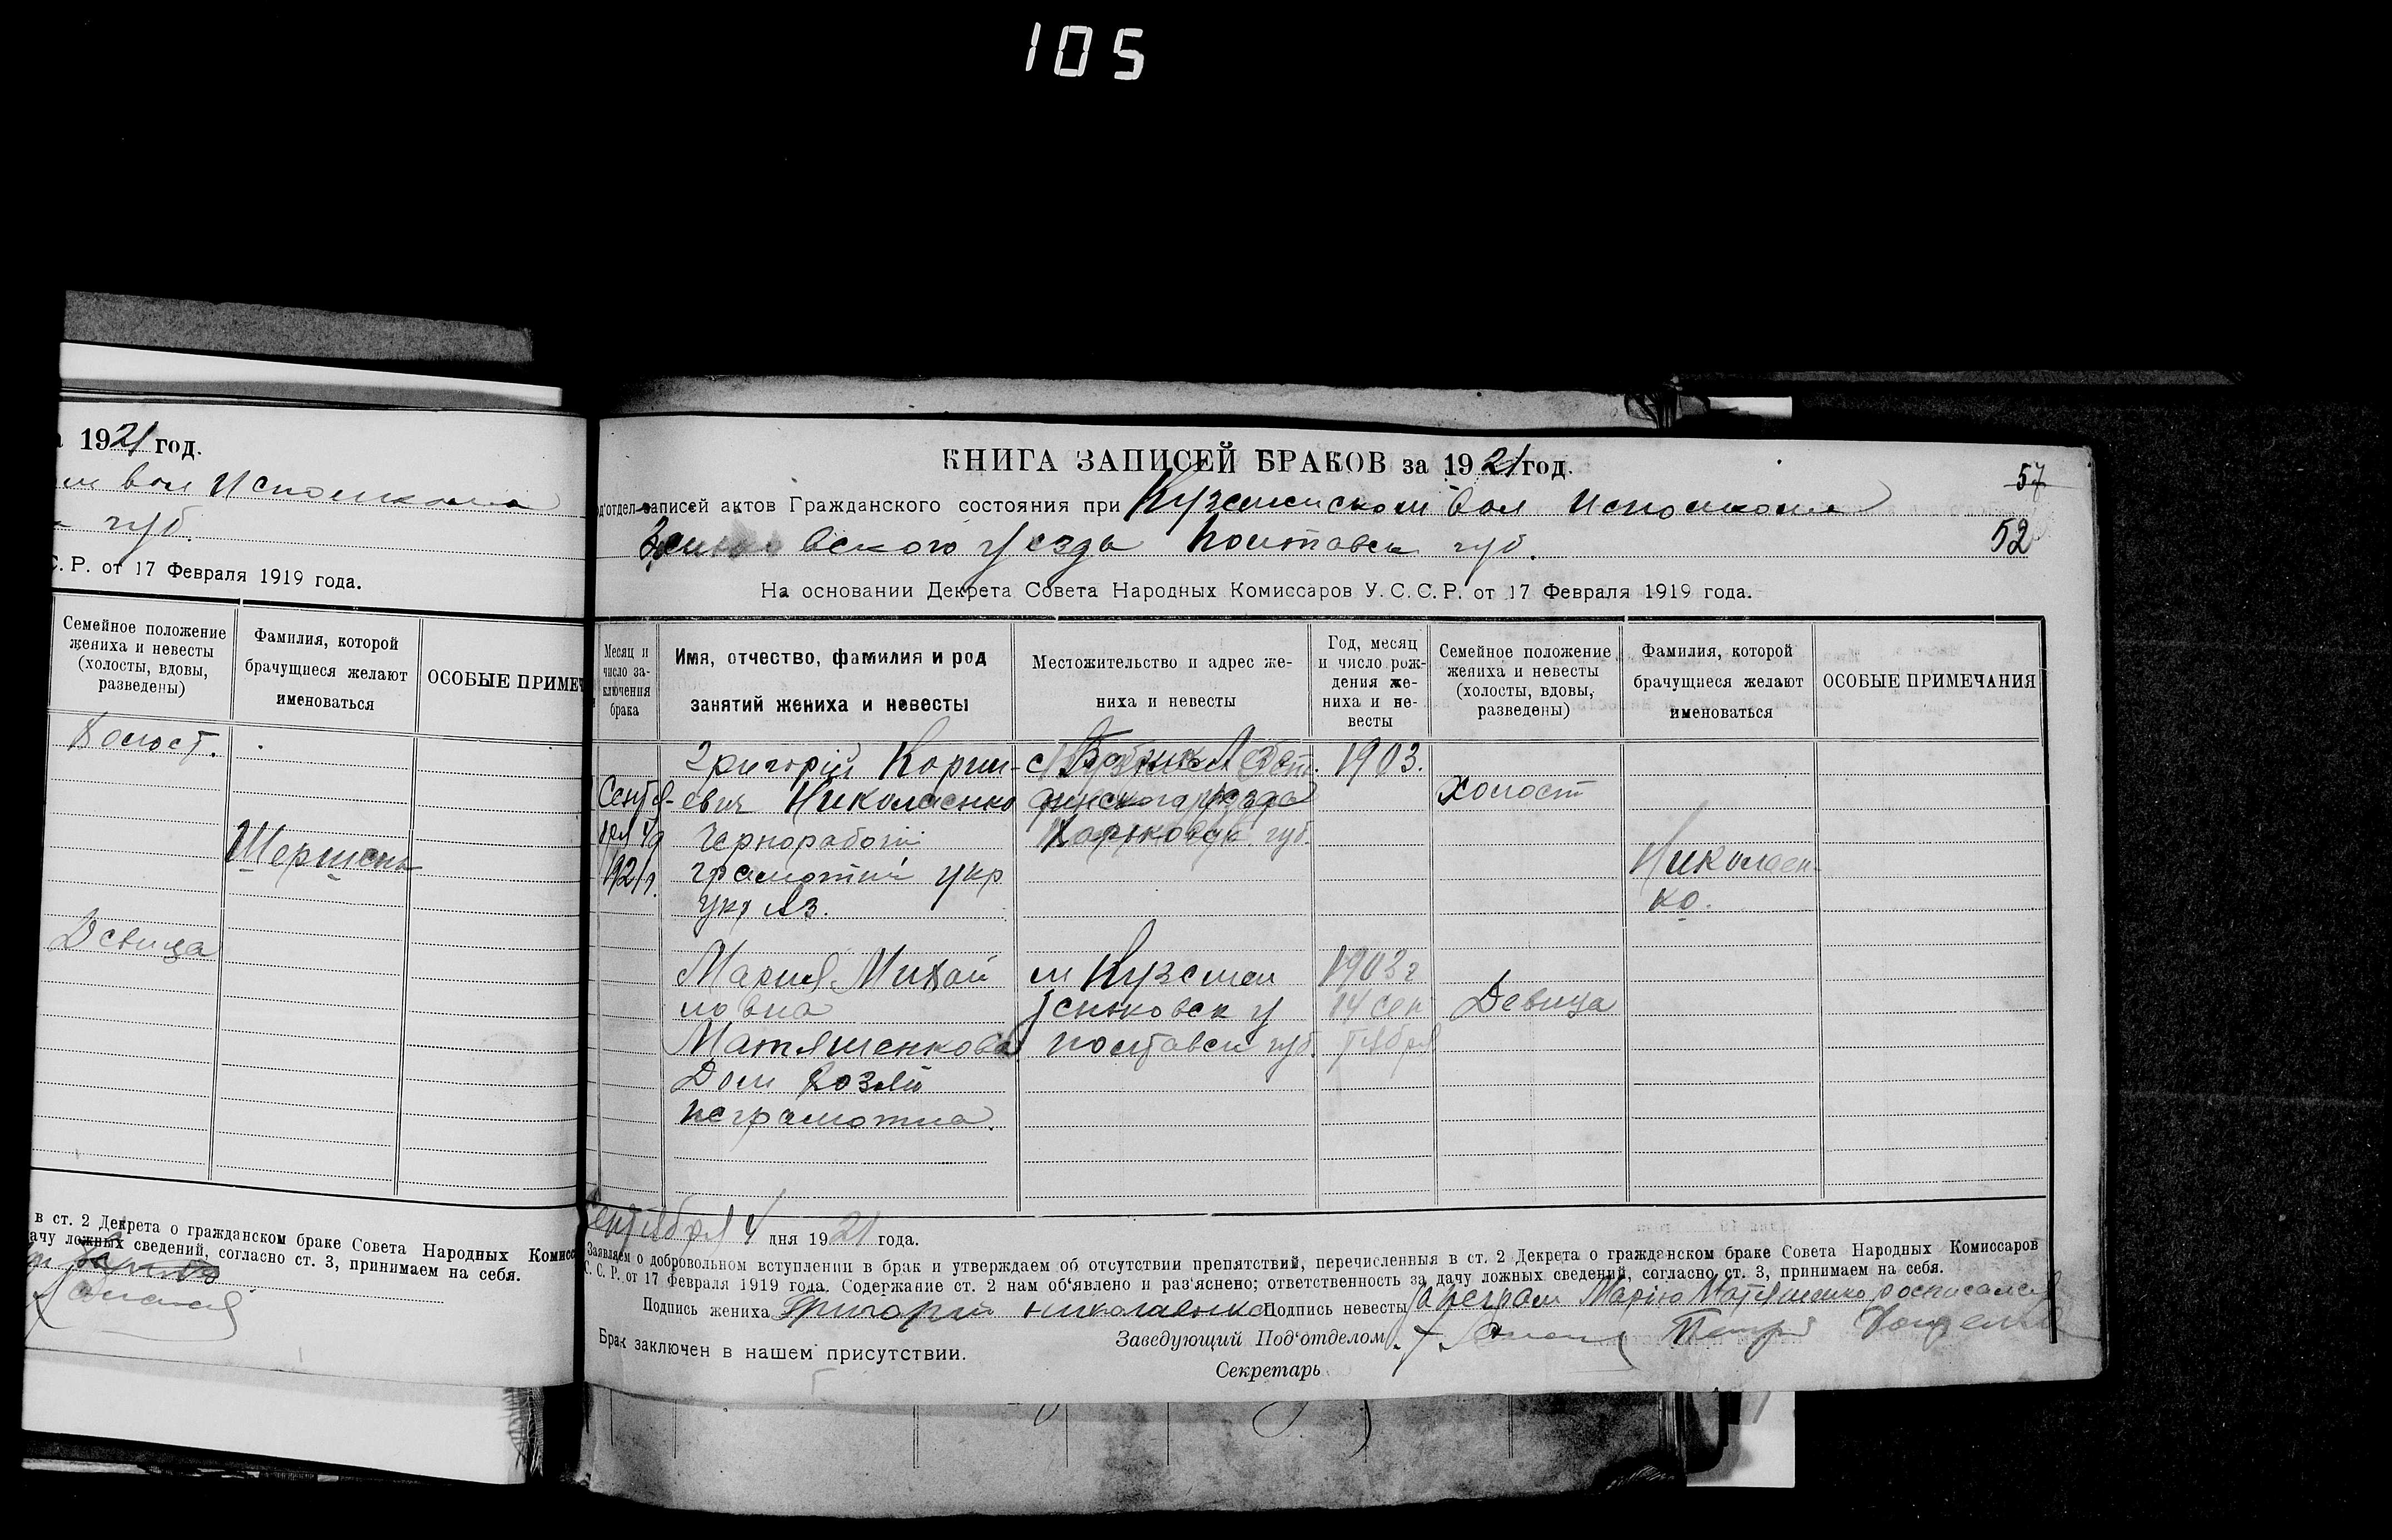 105
1921 год.
м вол Исполкома
губ.
С. Р. от 17 Февраля 1919 года.
Семейное положение жениха и невесты (холосты, вдовы, разведены)
Фамилия, которой брачущиеся желают именоваться
ОСОБЫЕ ПРИМЕЧ
Холост.
Шершень
Девица
в ст. 2 Декрета о гражданском браке Совета Народных Комисс
ачу ложных сведений, согласно ст. 3, принимаем на себя.
КНИГА ЗАПИСЕЙ БРАКОВ за 1921 год.
57
од'отдел записей актов Гражданского состояния при Куземиском вол Исполкоме
52
вского уезда Полтавск губ.
На основании Декрета Совета Народных Комиссаров У. С. С. Р. от 17 Февраля 1919 года.
Месяц и число заключения брака
Имя, отчество, фамилия и род занятий жениха и невесты
Местожительство и адрес жениха и невесты
Год, месяц и число рождения жениха и невесты
Семейное положение жениха и невесты (холосты, вдовы, разведены)
Фамилия, которой брачущиеся желают именоваться
ОСОБЫЕ ПРИМЕЧАНИЯ
Григорій Корни-
с
1903.
Сентя-
евич Николаенко
уезда
Холост
бря 4го
Чернорабочій
Харьковск губ.
1921 г.
грамотный укр
Николаен-
укр яз.
ко.
Мария Михай
м Куземен
1903 г
ловна
Зеньковск у
14 сен
Девица
Матяшенкова
Полтавск губ.
тября
Дом хозяй
неграмотна.
Сентября 4 дня 1921 года.
Заявляем о добровольном вступлении в брак и утверждаем об отсутствии препятствий, перечисленных в ст. 2 Декрета о гражданском браке Совета Народных Комиссаров
С. С. Р. от 17 Февраля 1919 года. Содержание ст. 2 нам об'явлено и раз'яснено; ответственность за дачу ложных сведений, согласно ст. 3, принимаем на себя.
Подпись жениха Григорій Николаенко Подпись невесты За неграм Марію Матяшенко росписался
Заведующий Под'отделом Петр
Брак заключен в нашем присутствии.
Секретарь